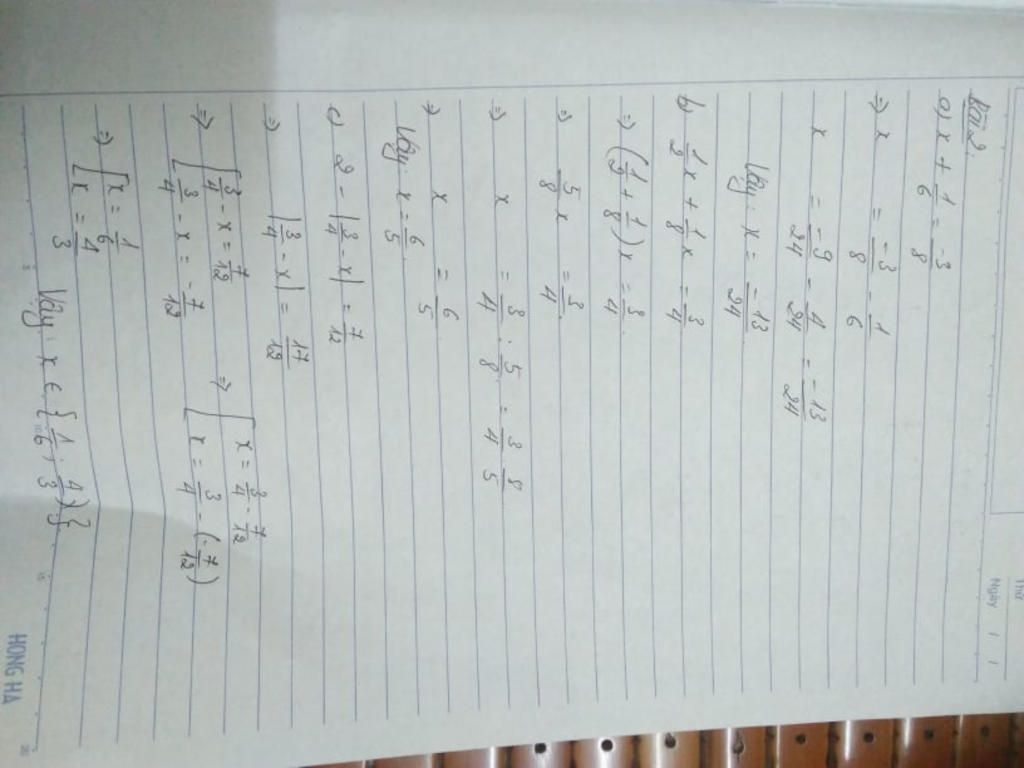 Thứ
Ngày / /
Bài 2.
a) x + 1/6 = -3/8
⇒ x = -3/8 - 1/6
x = -9/24 - 4/24 = -13/24
Vậy: x = -13/24
b) 1/2 x + 1/8 x = 3/4
⇒ (1/2 + 1/8) x = 3/4
⇒ 5/8 x = 3/4
⇒ x = 3/4 : 5/8 = 3/4 . 8/5
⇒ x = 6/5
Vậy: x = 6/5
c) 2 - |3/4 - x| = 7/12
⇒ |3/4 - x| = 17/12
⇒ [ 3/4 - x = 7/12 ⇒ [ x = 3/4 - 7/12
[ 3/4 - x = -7/12 [ x = 3/4 - (-7/12)
⇒ [ x = 1/6
[ x = 4/3
Vậy: x ∈ {1/6; 4/3}
HONG HA